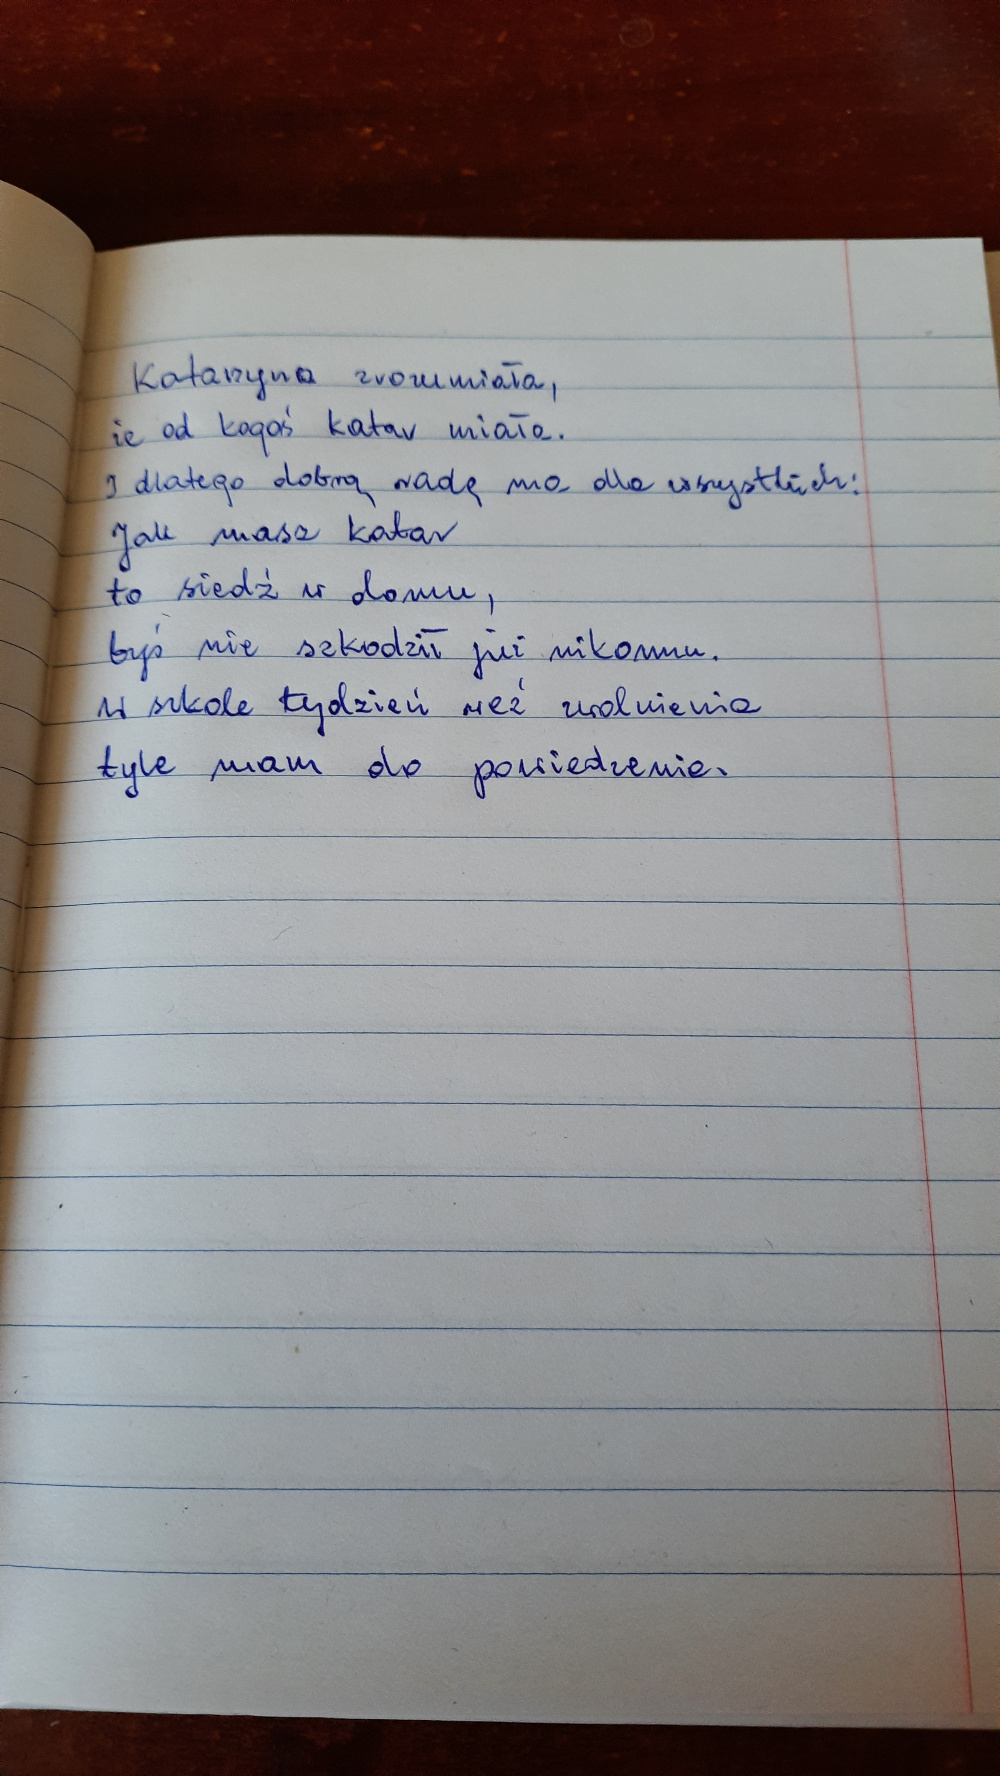 Katarzyna zrozumiała,
że od kogoś katar miała.
I dlatego dobrą radę ma dla wszystkich:
Jak masz katar
to siedź w domu,
byś nie szkodził już nikomu.
W szkole tydzień weź zwolnienia
tyle mam do powiedzenia.